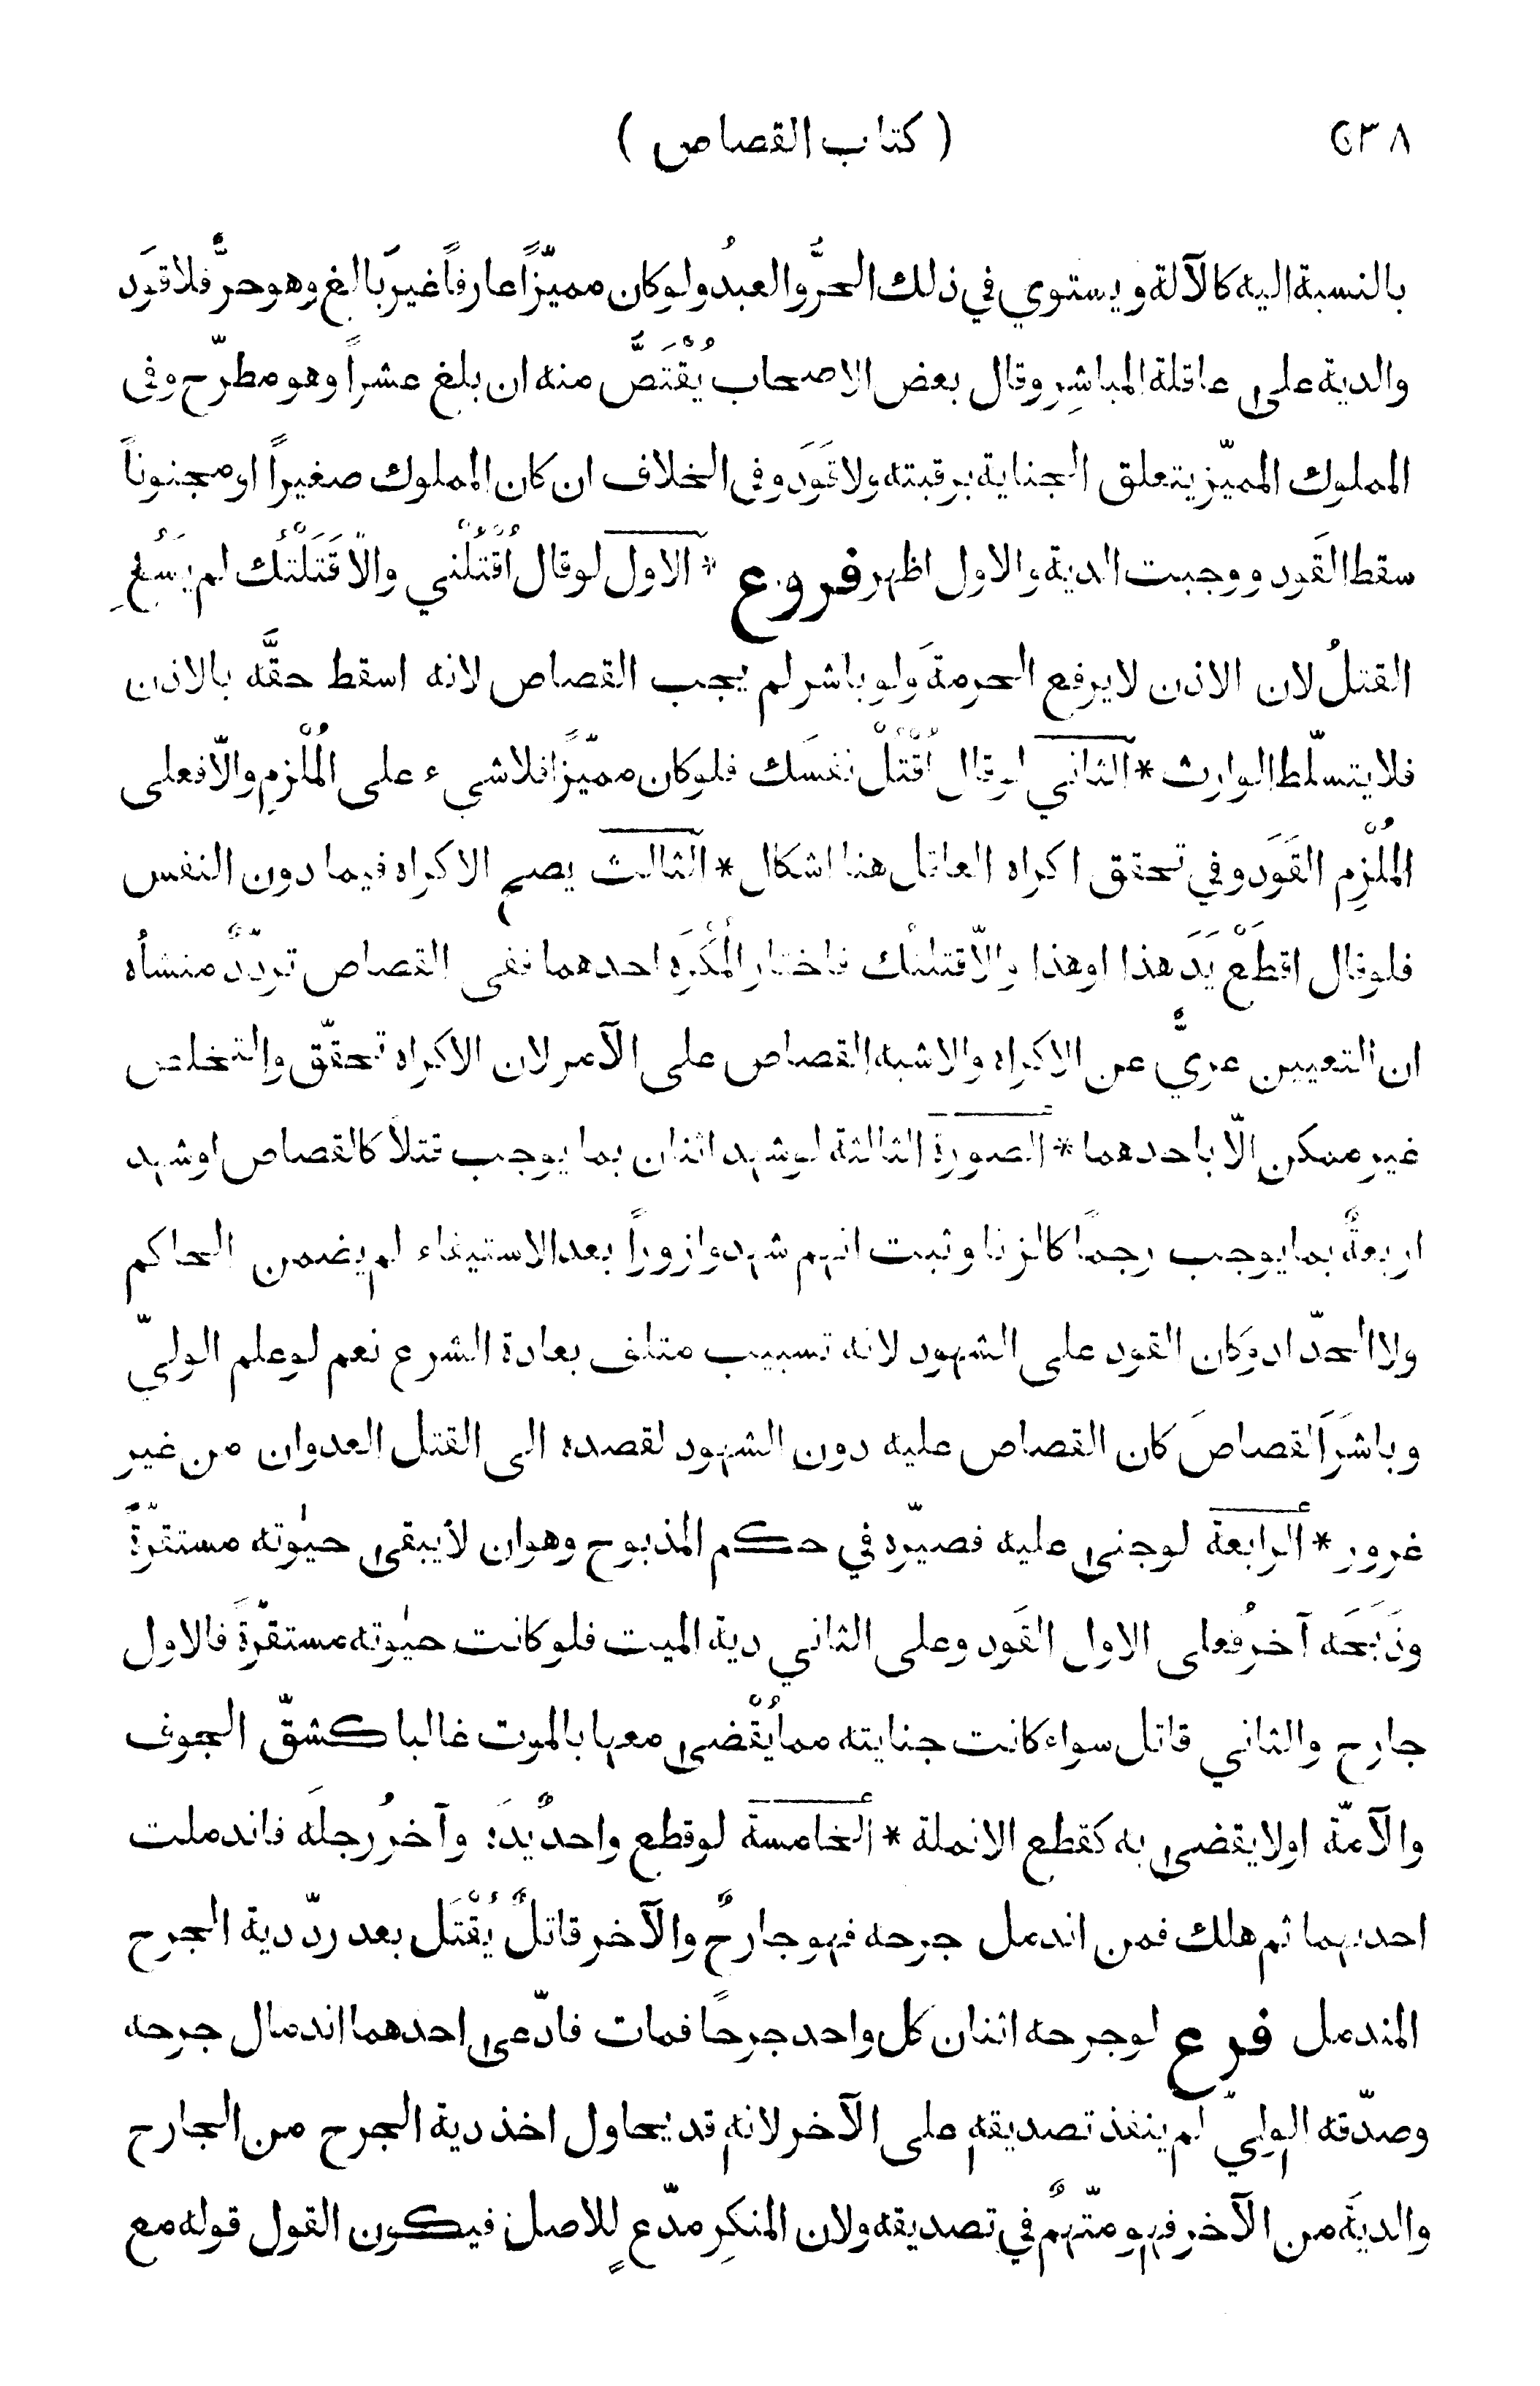 ٥٣٨ ( كتاب القصاص )
بالنسبة اليه كالآلة ويستوي في ذلك الحرُّ والعبدُ ولو كان مميّزاً عارفاً غيرَ بالغ وهو حرٌّ فلا قوَد
والدية على عاقلة المباشِر وقال بعض الاصحاب يُقْتَصُّ منه ان بلغ عشراً وهو مطرّح وفى
المملوك المميّز يتعلق الجناية برقبته ولا قَوَد وفى الخلاف ان كان المملوك صغيراً او مجنوناً
سقط القَود ووجبت الدية والاول اظهر فروع * الاول لو قال اُقْتُلْني والّا قَتَلْتُك لم يَسُغِ
القتلُ لان الاذن لا يرفع الحرمةَ ولو باشر لم يجب القصاص لانه اسقط حقَّه بالاذن
فلا يتسلّط الوارث * الثاني لو قال اُقْتُلْ نفسَك فلو كان مميّزًا فلا شيء على المُلْزِم والّا فعلى
المُلْزِم القَوَد وفي تحقق اكراه العاقل هنا اشكال * الثالث يصح الاكراه فيما دون النفس
فلو قال اقطَعْ يَدَ هذا او هذا والّا قتلتُك فاختار المُكْرَه احدهما ففى القصاص تردّدٌ منشأه
ان التعيين عريٌّ عن الاكراه والاشبه القصاص على الآمر لان الاكراه تحقّق والتخلص
غير ممكن الّا باحدهما * الصورة الثالثة لو شهد اثنان بما يوجب قتلاً كالقصاص او شهد
اربعةٌ بما يوجب رجماً كالزنا وثبت انهم شهدوا زوراً بعد الاستيفاء لم يضمن الحاكم
ولا الحدّاد وكان القود على الشهود لانه تسبيب متلف بعادة الشرع نعم لو علم الوليّ
وباشَرَ القصاصَ كان القصاص عليه دون الشهود لقصده الى القتل العدوان من غير
غرور * الرابعة لو جنى عليه فصيّره في حكم المذبوح وهو ان لا يبقى حيٰوته مستقرّةً
وذَبَحَه آخرُ فعلى الاول القَود وعلى الثاني دية الميت فلو كانت حيٰوته مستقرّةً فالاول
جارح والثاني قاتل سواء كانت جنايته مما يُقْضى معها بالموت غالبا كشقّ الجوف
والآمّة او لا يقضى به كقطع الانملة * الخامسة لو قطع واحدٌ يدَه وآخرُ رجلَه فاندملت
احديهما ثم هلك فمن اندمل جرحه فهو جارحٌ والآخر قاتلٌ يُقْتَل بعد ردّ دية الجرح
المندمل فرع لو جرحه اثنان كل واحد جرحًا فمات فادّعى احدهما اندمال جرحه
وصدّقه الوليّ لم ينفذ تصديقه على الآخر لانه قد يحاول اخذ دية الجرح من الجارح
والديَة من الآخر فهو متّهمٌ في تصديقه ولان المنكِر مدّعٍ للاصل فيكون القول قوله مع